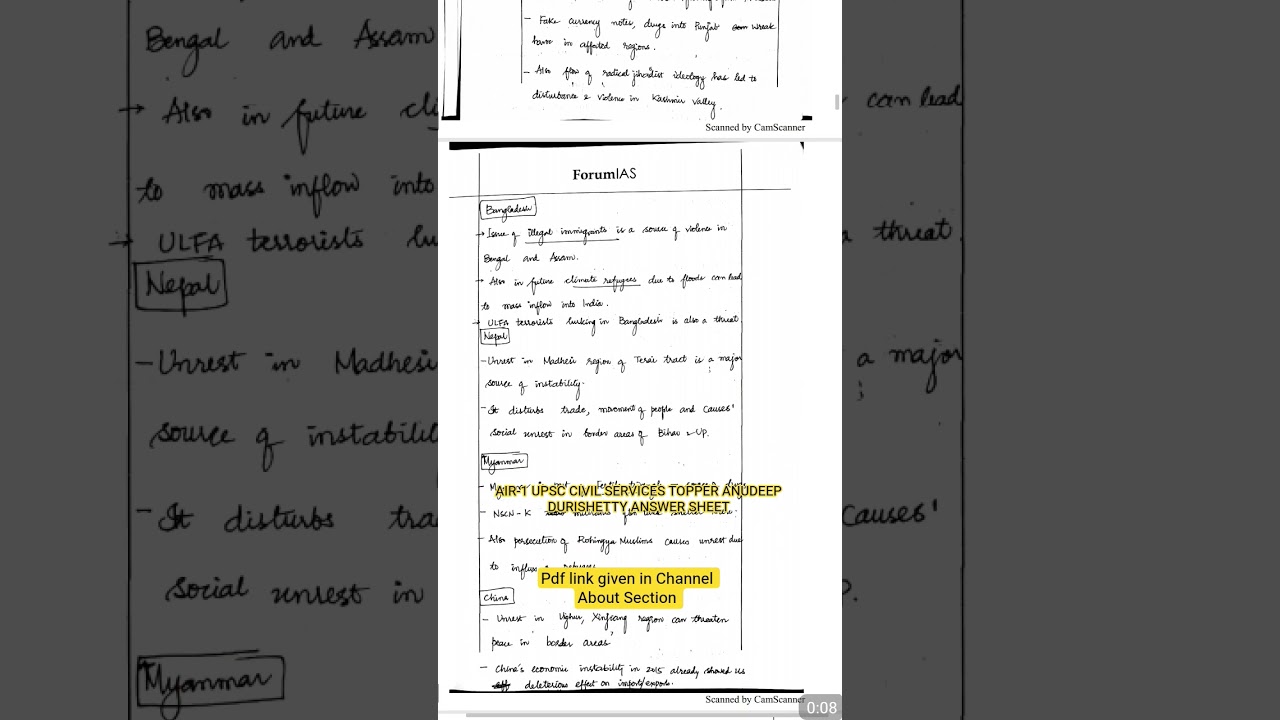 Fake currency notes, drugs into Punjab wreak
havoc in affected regions.
- Also flow of radical jihadist ideology has led to
disturbance & violence in Kashmir valley.
Scanned by CamScanner
ForumIAS
Bangladesh
→ Issue of illegal immigrants is a source of violence in
Bengal and Assam.
→ Also in future climate refugees due to floods can lead
to mass inflow into India.
→ ULFA terrorists lurking in Bangladesh is also a threat
Nepal
- Unrest in Madhesi region of Terai tract is a major
source of instability.
- It disturbs trade, movement of people and causes
social unrest in border areas of Bihar & UP.
Myanmar
AIR-1 UPSC CIVIL SERVICES TOPPER ANUDEEP
DURISHETTY ANSWER SHEET
- NSCN-K
- Also persecution of Rohingya Muslims causes unrest due
to influx
Pdf link given in Channel
About Section
China
- Unrest in Uighur, Xinjiang region can threaten
peace in border areas
- China's economic instability in 2015 already showed us
deleterious effect on import/exports.
Scanned by CamScanner
0:08
Bengal and Assam
→ Also in future
to mass inflow into
→ ULFA terrorists
Nepal
- Unrest in Madhesi
source of
- It disturbs
social unrest in
Myanmar
can lead
a threat
a major
causes'